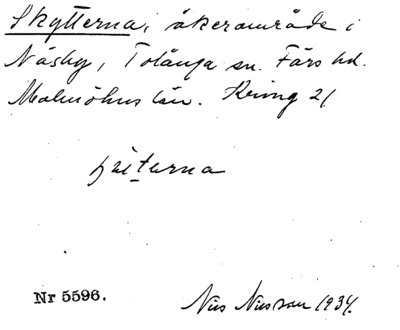 Skytterna, åkerområde i
Näsby, Tolånga sn. Färs hd.
Malmöhus län. Kring 21
Nr 5596.
Nils Nilsson 1934.